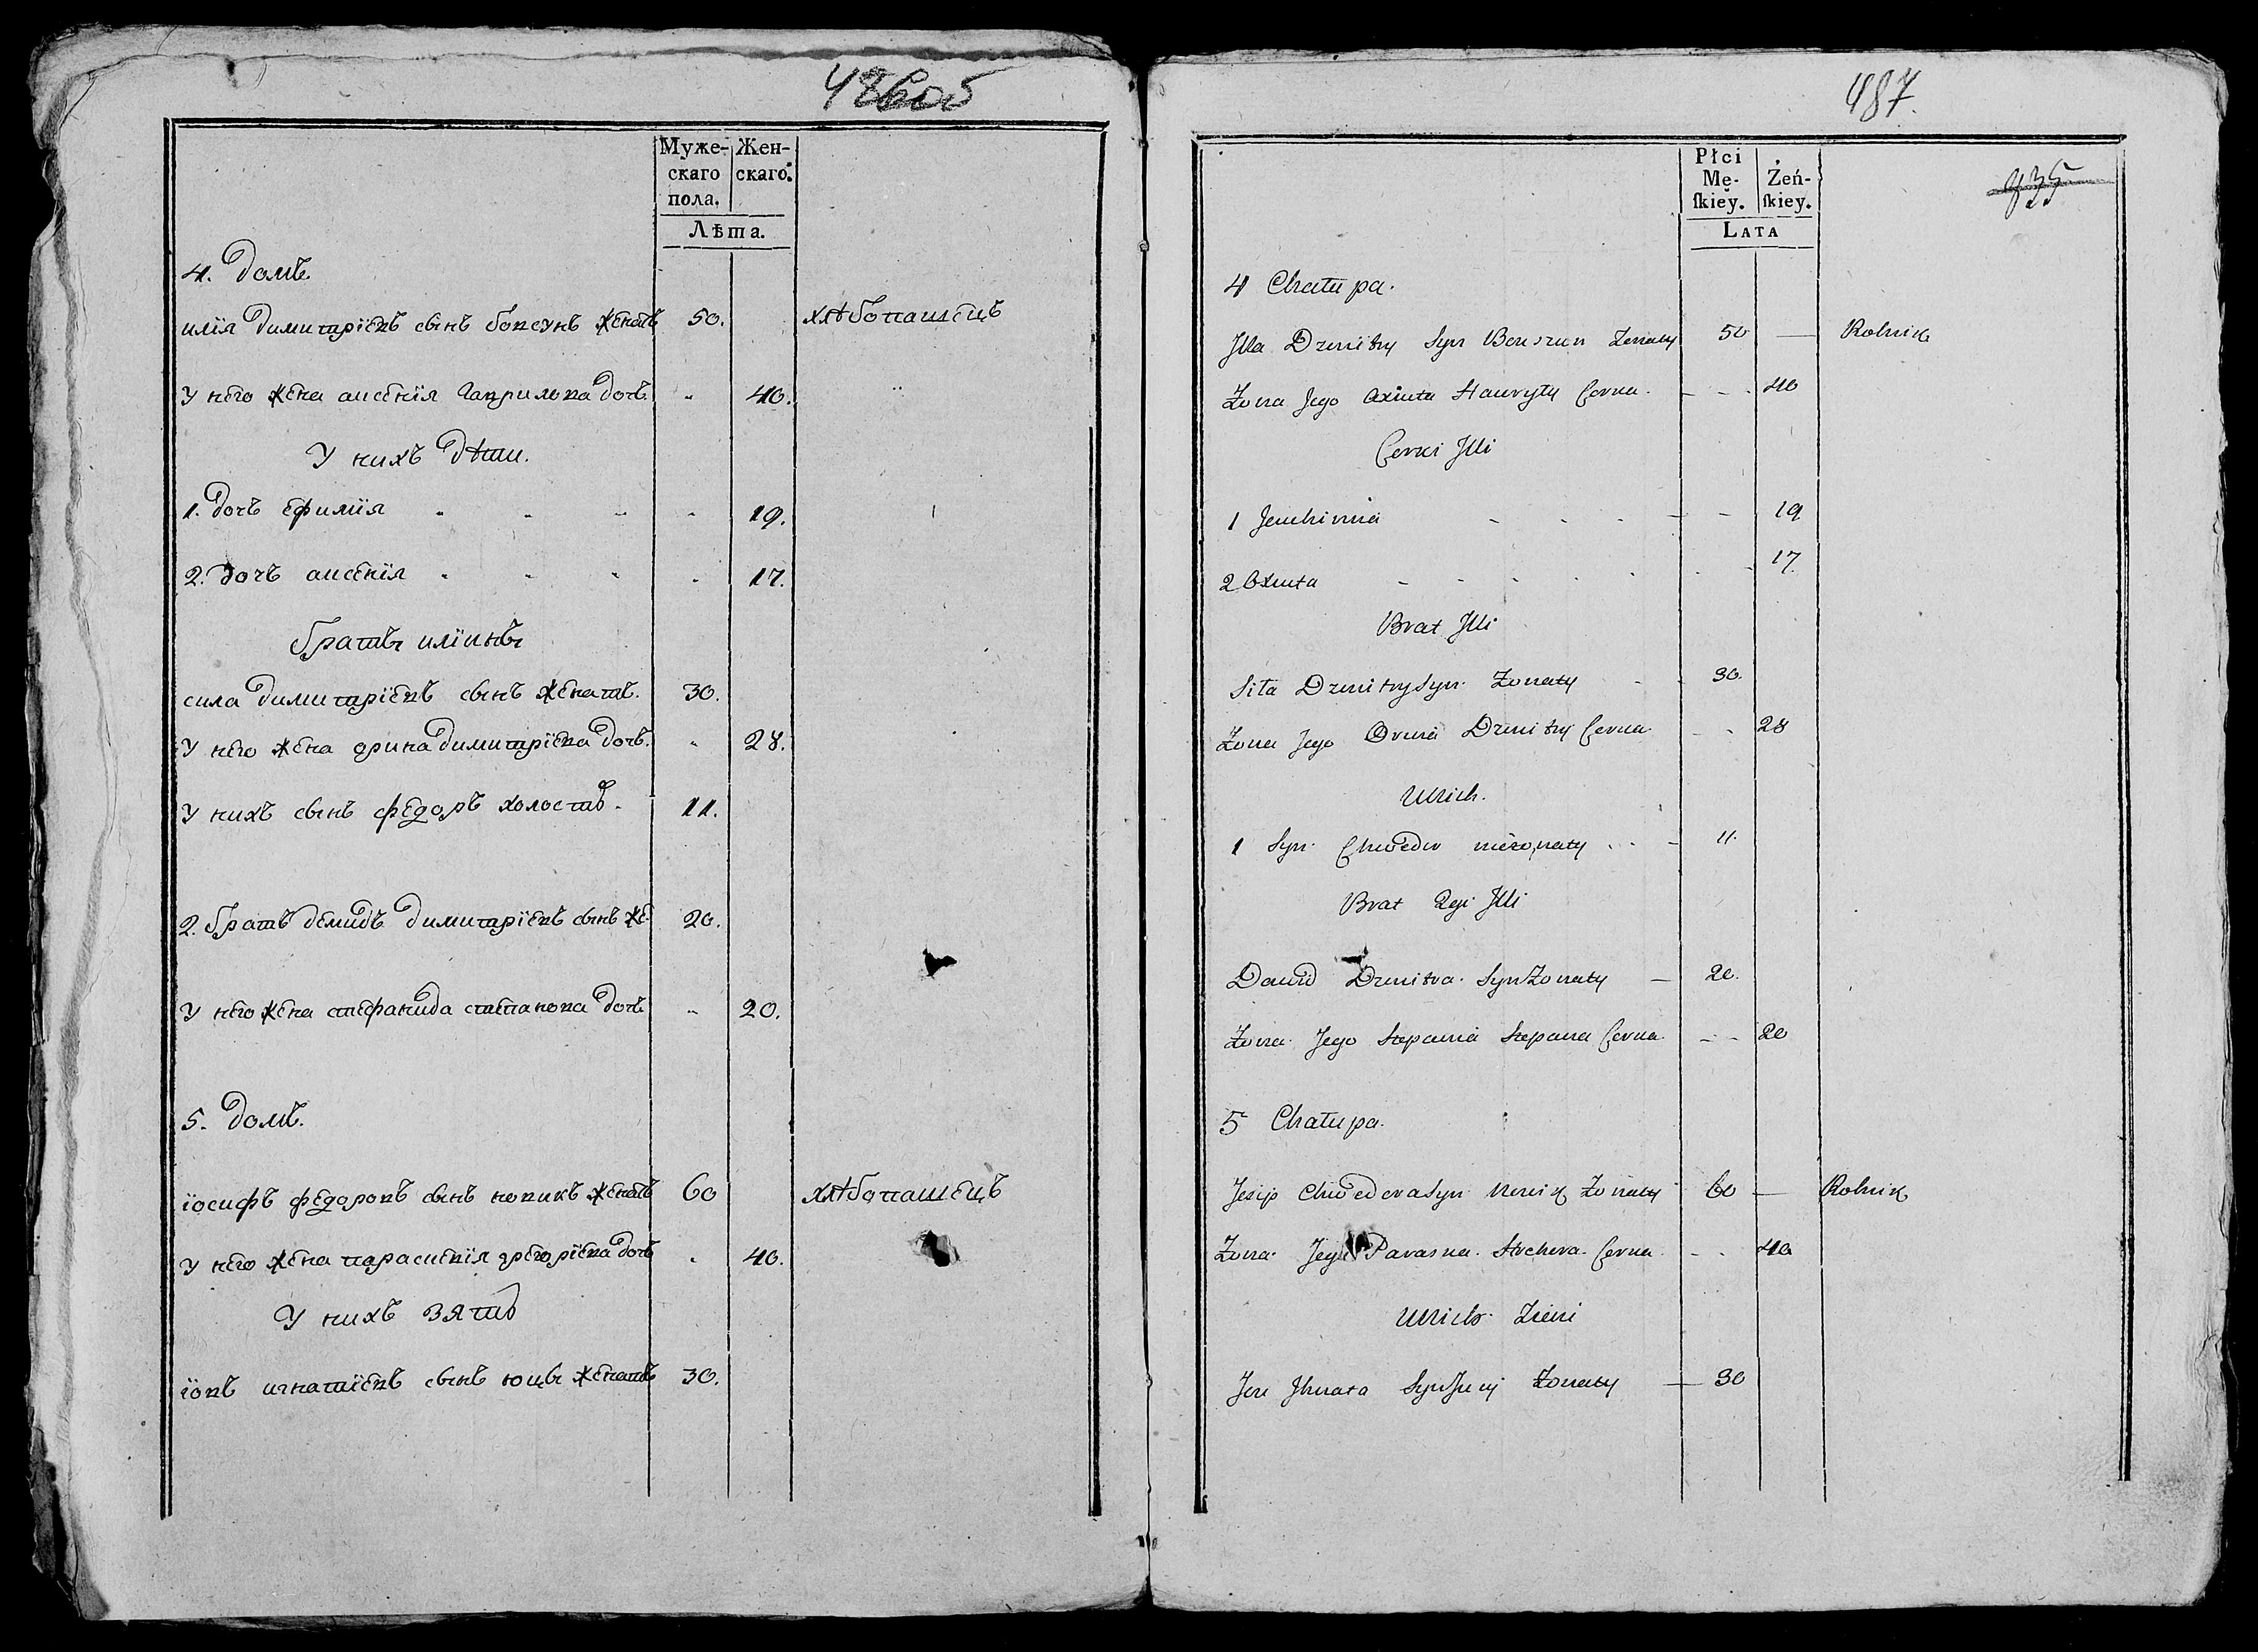 486об
Муже-
скаго
пола.
Жен-
скаго.
Лѣта.
4. домъ.
илїя димитрїевъ сынъ боксунъ женатъ 50. хлѣбопашецъ
У него жена аксенїя гаврилова дочь " 40. "
У нихъ дѣти.
1. дочь ефимїя " 19.
2. дочь аксенїя " 17.
братъ илїинъ
сила димитрїевъ сынъ женатъ. 30.
У него жена орина димитрїева дочь. " 28.
У нихъ сынъ федоръ холостъ. 11.
2. братъ демидъ димитрїевъ сынъ же. 20.
У него жена стефанида степанова дочь " 20.
5. домъ.
їосифъ федоровъ сынъ новикъ женатъ 60 хлѣбопашецъ
У него жена параскевїя григорїева дочь " 40.
У нихъ зять
їовъ игнатїевъ сынъ юцъ женатъ 30.
487.
835
Płci
Mę-
ſkiey.
Żeń-
ſkiey.
LATA
4 Chałupa.
Jlla Dzmitry Syn Żonaty 50 — Rolnik
Żona Jego Axiuta Hauryły Corka - - - 40
Corki Jlli
1 Jauchimia - - - - - 19
2 Oxiuta - - - - - 17.
Brat Jlli
Siła Dzmitry Syn Żonaty - - 30.
Żona Jego Orina Dzmitry Corka - - 28
U Nich.
1 Syn Chwedor nieżonaty . . - 11.
Brat 2gi Jlli
Dawid Dzmitra Syn Żonaty — 20.
Żona Jego Stepania Stepana Corka - - 20
5 Chałupa.
Jezip Chwedora Syn Nowik Żonaty 60 — Rolnik
Żona Jego Paraska Corka - - 40
U Nich Zienć
Jow Jhnata Syn Żonaty — 30